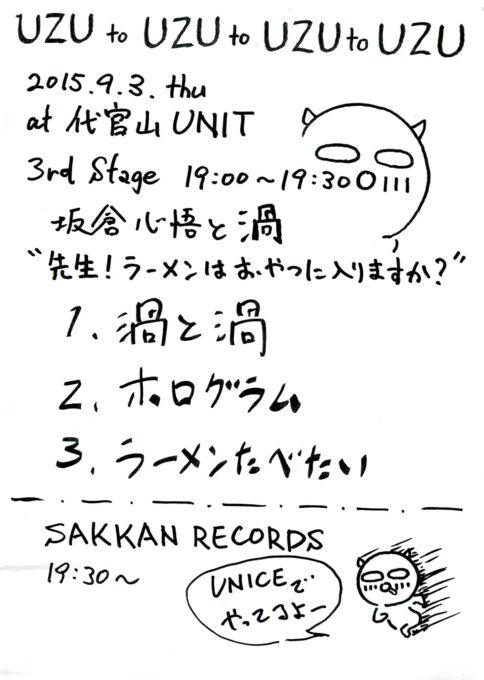 UZU to UZU to UZU to UZU
2015.9.3. thu
at 代官山 UNIT
3rd Stage 19:00～19:30
坂倉心悟と渦
"先生！ラーメンはおやつに入りますか？"
1. 渦と渦
2. ホログラム
3. ラーメンたべたい
SAKKAN RECORDS
19:30～
UNICEで
やってるよー